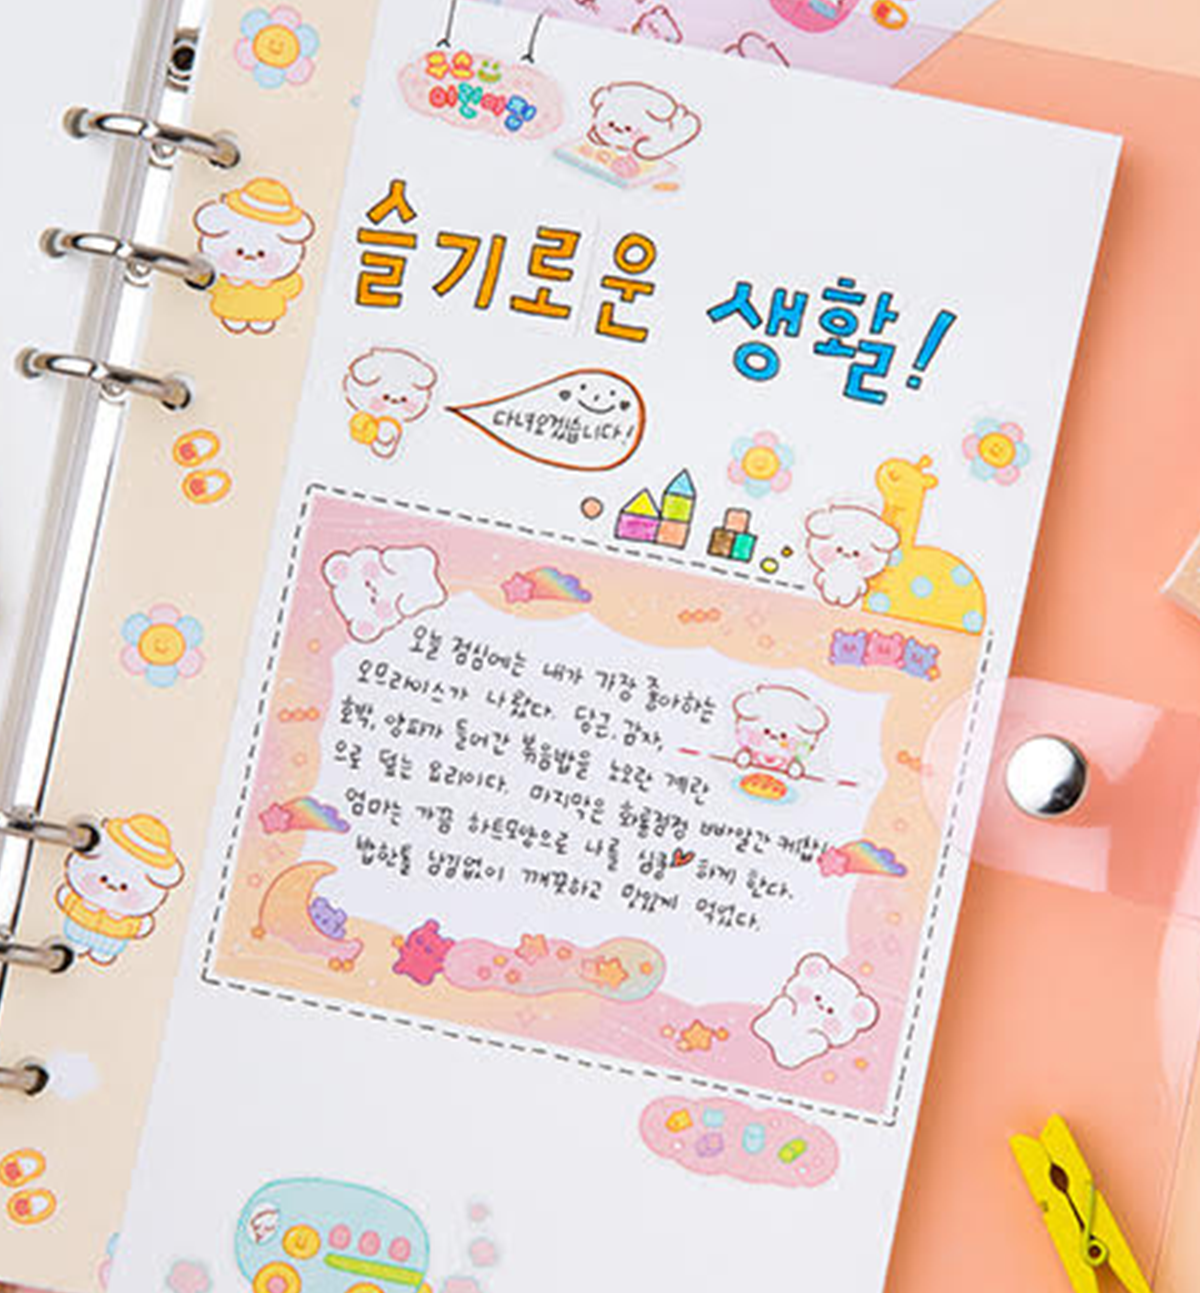 어린이집
슬기로운 생활!
다녀오겠습니다!
오늘 점심에는 내가 가장 좋아하는
오므라이스가 나왔다. 당근, 감자,
호박, 양파가 들어간 볶음밥을 노오란 계란
으로 덮는 요리이다. 마지막은 화룡점정 빠알간 케찹!
엄마는 가끔 하트모양으로 나를 심쿵 하게 한다.
밥한톨 남김없이 깨끗하고 맛있게 먹었다.